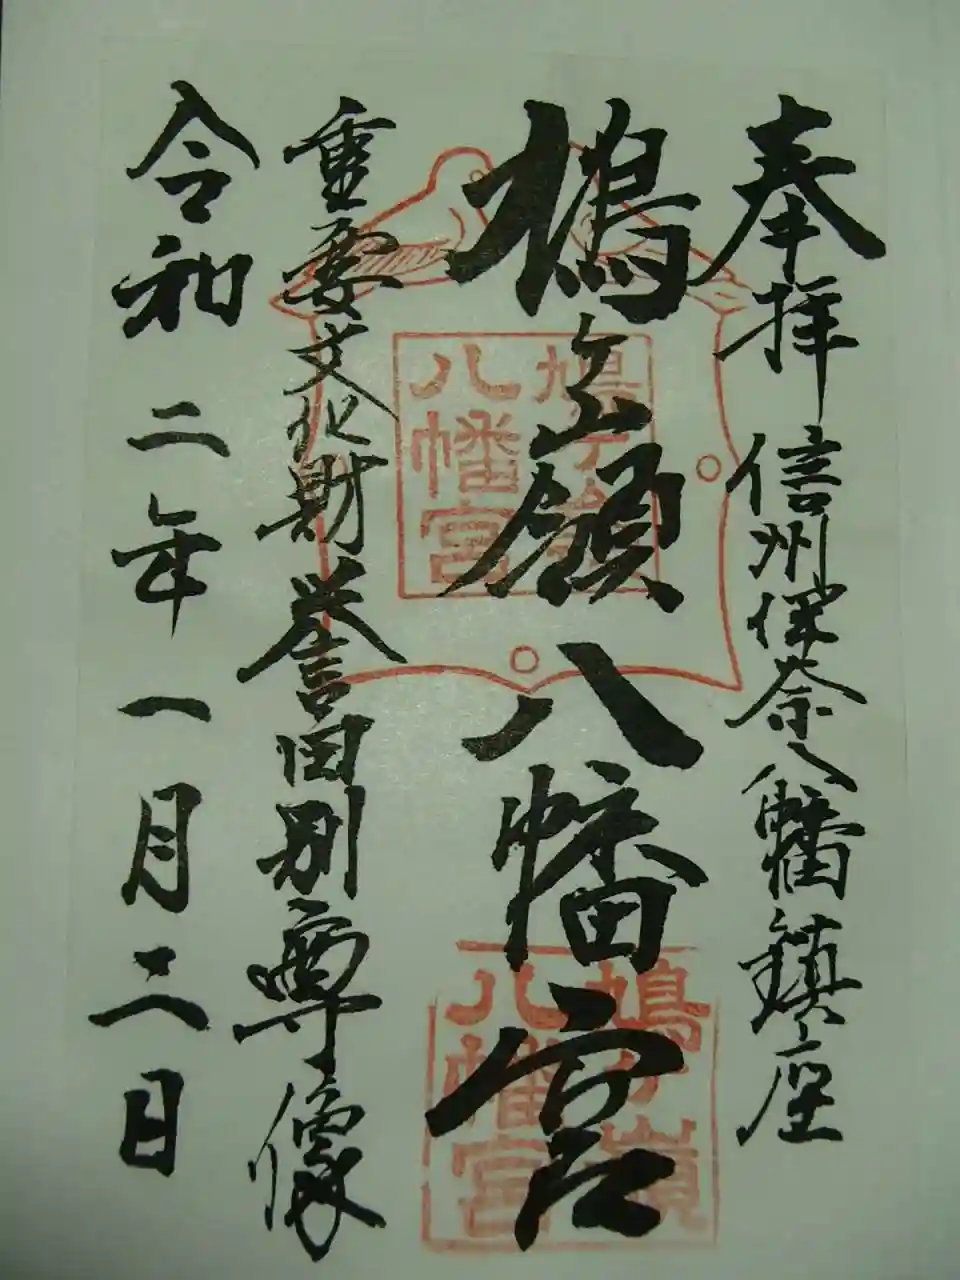 奉拝 信州保奈八幡鎮座
鳩ヶ嶺八幡宮
重要文化財誉田別尊像
令和二年一月二日
鳩ヶ嶺
八幡宮
鳩ヶ嶺
八幡宮